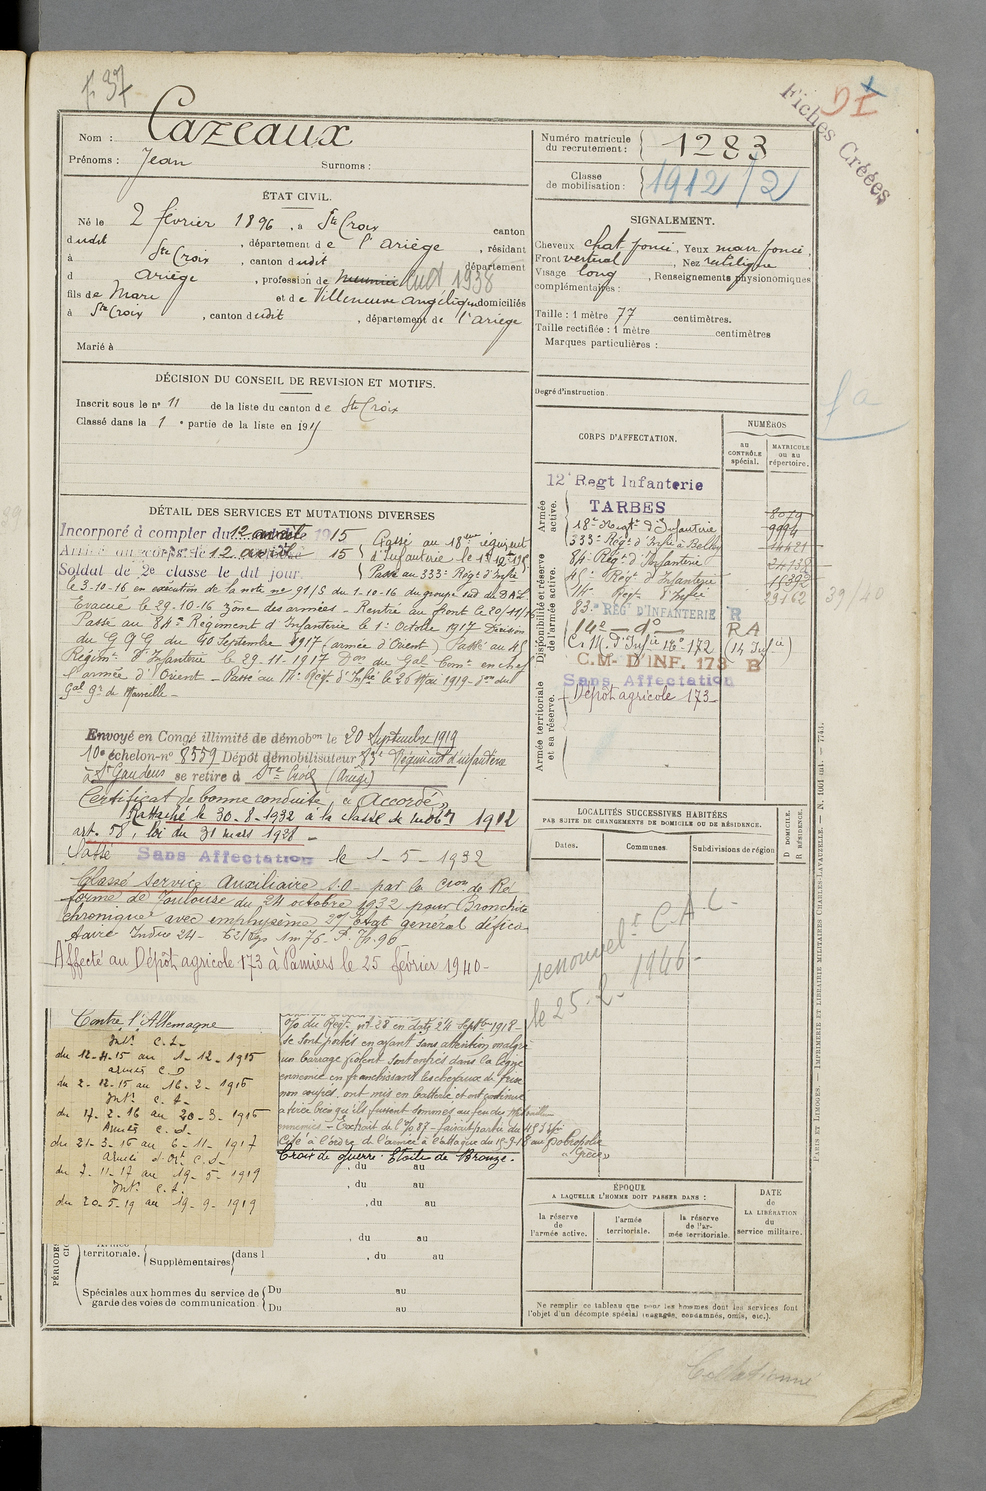 f 37
Cazeaux
Nom :
Prénoms : Jean Surnoms :
Numéro matricule du recrutement : 1283
Classe de mobilisation : 1912/2
DI
Fiches Créées
ÉTAT CIVIL.
Né le 2 février 1896, à Ste Croix canton
dudit, département de l'Ariège, résidant
à Ste Croix, canton dudit département
d Ariège, profession de cult 1938
fils de Marc et de Villeneuve Angélique domiciliés
à Ste Croix, canton dudit, département de l'Ariège
Marié à
SIGNALEMENT.
Cheveux chat. foncé, Yeux marr. foncé,
Front vertical Nez rectiligne
Visage long, Renseignements physionomiques
complémentaires :
Taille : 1 mètre 77 centimètres.
Taille rectifiée : 1 mètre centimètres
Marques particulières :
Degré d'instruction
DÉCISION DU CONSEIL DE REVISION ET MOTIFS.
Inscrit sous le n° 11 de la liste du canton de Ste Croix
Classé dans la 1e partie de la liste en 1915
DÉTAIL DES SERVICES ET MUTATIONS DIVERSES
Incorporé à compter du 12 avril 1915
Arrivé au corps le 12 avril 15
Soldat de 2e classe le dit jour.
Passé au 18eme régiment
d'Infanterie le 1er 12 15
Passé au 333e Régt d'Infie
le 3-10-16 en exécution de la note n° 91/S du 1-10-16 du groupe
Evacué le 29-10-16 zône des armées - Rentré au front le 20/11/16
Passé au 84e Regiment d'Infanterie le 1er Octobre 1917 Décision
du G Q G du 10 Septembre 1917 (armée d'Orient) Passé au 45
Régimt d'Infanterie le 29-11-1917 Don du Gal Comt en chef
l'armée d'Orient - Passé au 14e Régt d'Infie le 20 Mai 1919 - don du
Gal Gr de Marseille -
Envoyé en Congé illimité de démobon le 20 Septembre 1919
10e échelon-n° 8559 Dépôt démobilisateur 83e Régiment d'infanterie
à St Gaudens se retire à Ste Croix (Ariège)
Certificat de bonne conduite "Accordé"
Rattaché le 30-8-1932 à la classe de mobon 1912
art. 58, loi du 31 mars 1928 -
Passé Sans Affectation le 1-5-1932
Classé service auxiliaire S.O - par la Cion de Ré
forme de Toulouse du 24 octobre 1932 pour Bronchite
chronique avec emphysème 2°) Etat général défici
taire Indice 24 - 62 kgs 1m76 P. Th. 90
Affecté au Dépôt agricole 173 à Pamiers le 25 février 1940-
CORPS D'AFFECTATION.
NUMÉROS
AU CONTRÔLE spécial.
MATRICULE OU AU répertoire.
Armée active.
Disponibilité et réserve de l'armée active.
Armée territoriale et sa réserve.
12e Regt Infanterie
TARBES 8079
18e Régt d'Infanterie 9994
333e Régt d'Infie à Belley
84e Régt d'Infanterie
45e Régt d'Infanterie
14e Régt d'Infie 29162
83e REGt D'INFANTERIE R
14e - do - RA
C.M. d'Infie 18e 172 (14 Infie)
C.M. D'INF. 173 B
Sans Affectation
Dépôt agricole 173
39/40
LOCALITÉS SUCCESSIVES HABITÉES
PAR SUITE DE CHANGEMENTS DE DOMICILE OU DE RÉSIDENCE.
Dates. Communes. Subdivisions de région
D DOMICILE. R RÉSIDENCE.
renouvelt C.A.C.
le 25-2-1946-
Contre l'Allemagne
Intr C.S.
du 12-4-15 au 1-12-1915
armées C.D
du 2-12-15 au 16-2-1916
Intr C.S.
du 17-2-16 au 20-3-1916
Armées C.D.
du 21-3-16 au 6-11-1917
armée d'Ort C.D.
du 7-11-17 au 19-5-1919
Intr C.S.
du 20-5-19 au 19-9-1919
O/o du Régt n° 28 en date 24 Septbre 1918-
Se sont portés en avant sans attention malgré
un barrage violent. Sont entrés dans la ligne
ennemie en franchissant les chevaux de frise
non coupés, ont mis en batterie et ont continué
à tirer bien qu'ils fussent sommés
ennemies - Extrait de l'O/ 87 - faisait partie du 45e Rgt
Cité à l'ordre de l'armée à l'attaque du 15-9-18 au
Croix de guerre. Etoile de Bronze.
, du au
, du au
, du au
, du au
PÉRIODES
territoriale. Supplémentaires dans l , du au
Spéciales aux hommes du service de garde des voies de communication
Du au
Du au
ÉPOQUE
A LAQUELLE L'HOMME DOIT PASSER DANS :
la réserve de l'armée active.
l'armée territoriale.
la réserve de l'armée territoriale.
DATE DE LA LIBÉRATION du service militaire.
Ne remplir ce tableau que pour les hommes dont les services font
l'objet d'un décompte spécial (engagés, condamnés, omis, etc.).
PARIS ET LIMOGES. — IMPRIMERIE ET LIBRAIRIE MILITAIRES CHARLES-LAVAUZELLE.
Collationné